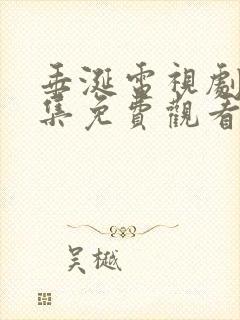 垂涎電視劇
集免費觀看
吴樾